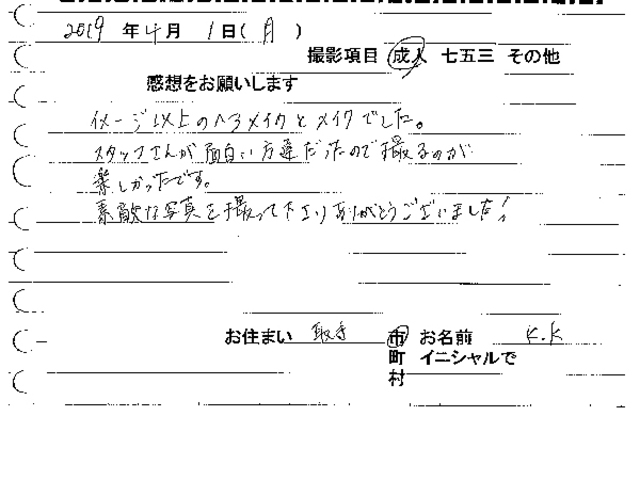 2019 年 4 月 1 日( 月 )
撮影項目 成人 七五三 その他
感想をお願いします
イメージ以上のヘアメイクとメイクでした。
スタッフさんが面白い方達だったので撮るのが
楽しかったです。
素敵な写真を撮って下さりありがとうございました!
お住まい 取手 市 お名前 K.K
町 イニシャルで
村